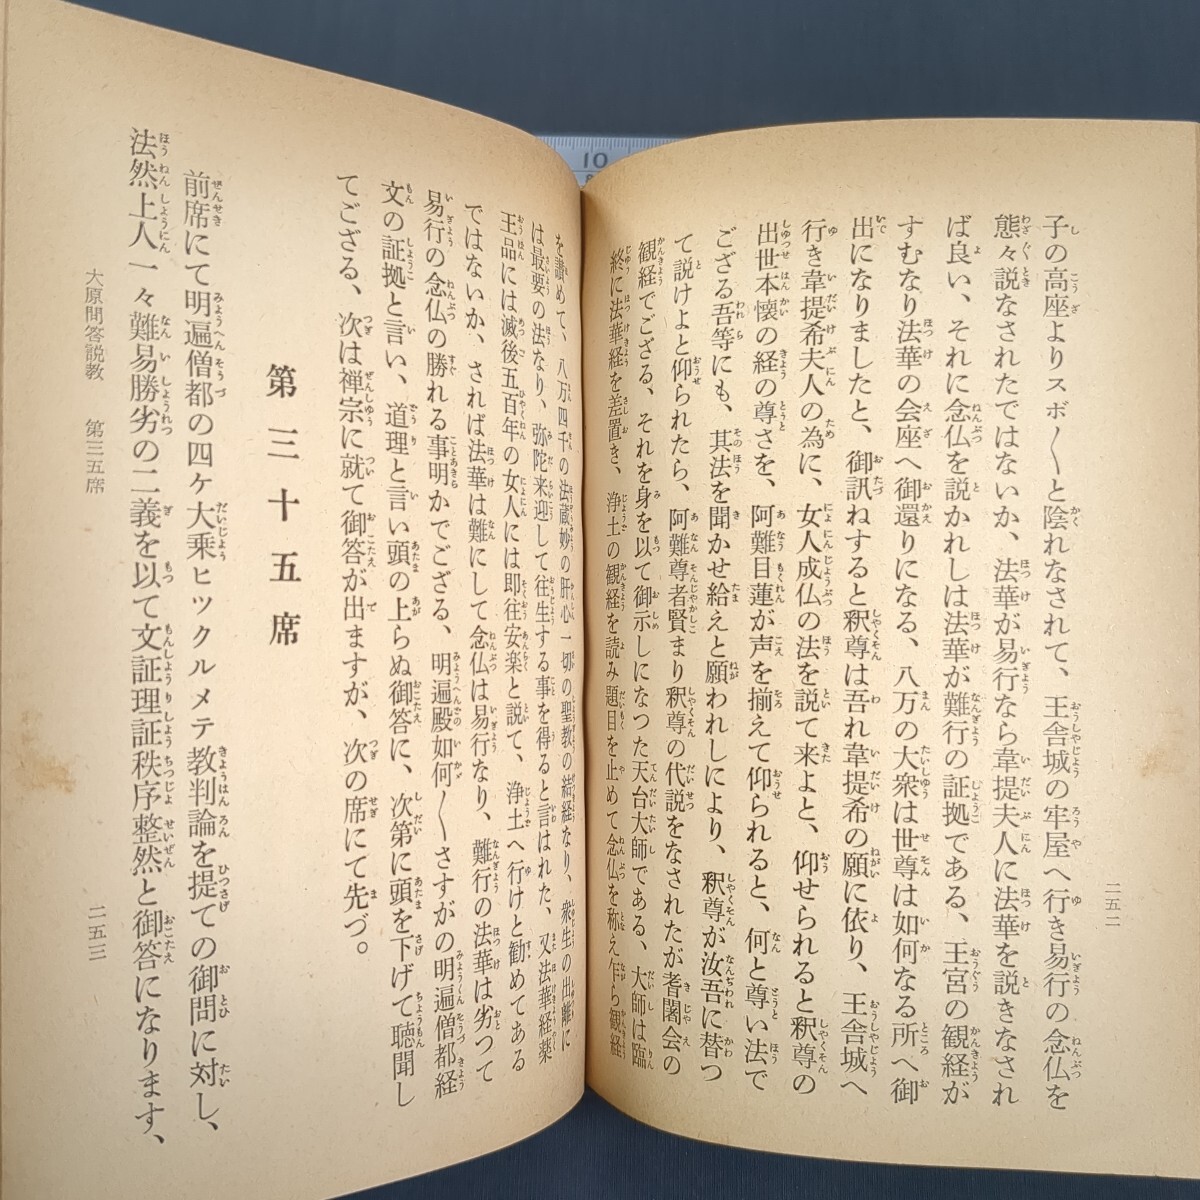 子の高座よりスボ〳〵と陰れなされて、王舎城の牢屋へ行き易行の念仏を
態々説なされたではないか、法華が易行なら韋提夫人に法華を説きなされ
ば良い、それに念仏を説かれしは法華が難行の証拠である、王宮の観経が
すむなり法華の会座へ御還りになる、八万の大衆は世尊は如何なる所へ御
出になりましたと、御訊ねすると釈尊は吾れ韋提希の願に依り、王舎城へ
行き韋提希夫人の為に、女人成仏の法を説て来よと、仰せられると釈尊の
出世本懐の経の尊さを、阿難目蓮が声を揃えて仰られると、何と尊い法で
ござる吾等にも、其法を聞かせ給えと願われしにより、釈尊が汝吾に替つ
て説けよと仰られたら、阿難尊者賢まり釈尊の代説をなされたが耆闍会の
観経でござる、それを身を以て御示しになつた天台大師である、大師は臨
終に法華経を差置き、浄土の観経を読み題目を止めて念仏を称え乍ら観経
二五二
を讃めて、八万四千の法蔵妙の肝心一切の聖教の結経なり、衆生の出離に
は最要の法なり、弥陀来迎して往生する事を得ると言はれた、又法華経薬
王品には滅後五百年の女人には即往安楽と説て、浄土へ行けと勧めてある
ではないか、されば法華は難にして念仏は易行なり、難行の法華は劣つて
易行の念仏の勝れる事明かでござる、明遍殿如何〳〵さすがの明遍僧都経
文の証拠と言い、道理と言い頭の上らぬ御答に、次第に頭を下げて聴聞し
てござる、次は禅宗に就て御答が出ますが、次の席にて先づ。
第三十五席
前席にて明遍僧都の四ケ大乗ヒツクルメテ教判論を提ての御問に対し、
法然上人一々難易勝劣の二義を以て文証理証秩序整然と御答になります、
大原問答説教 第三五席
二五三
10